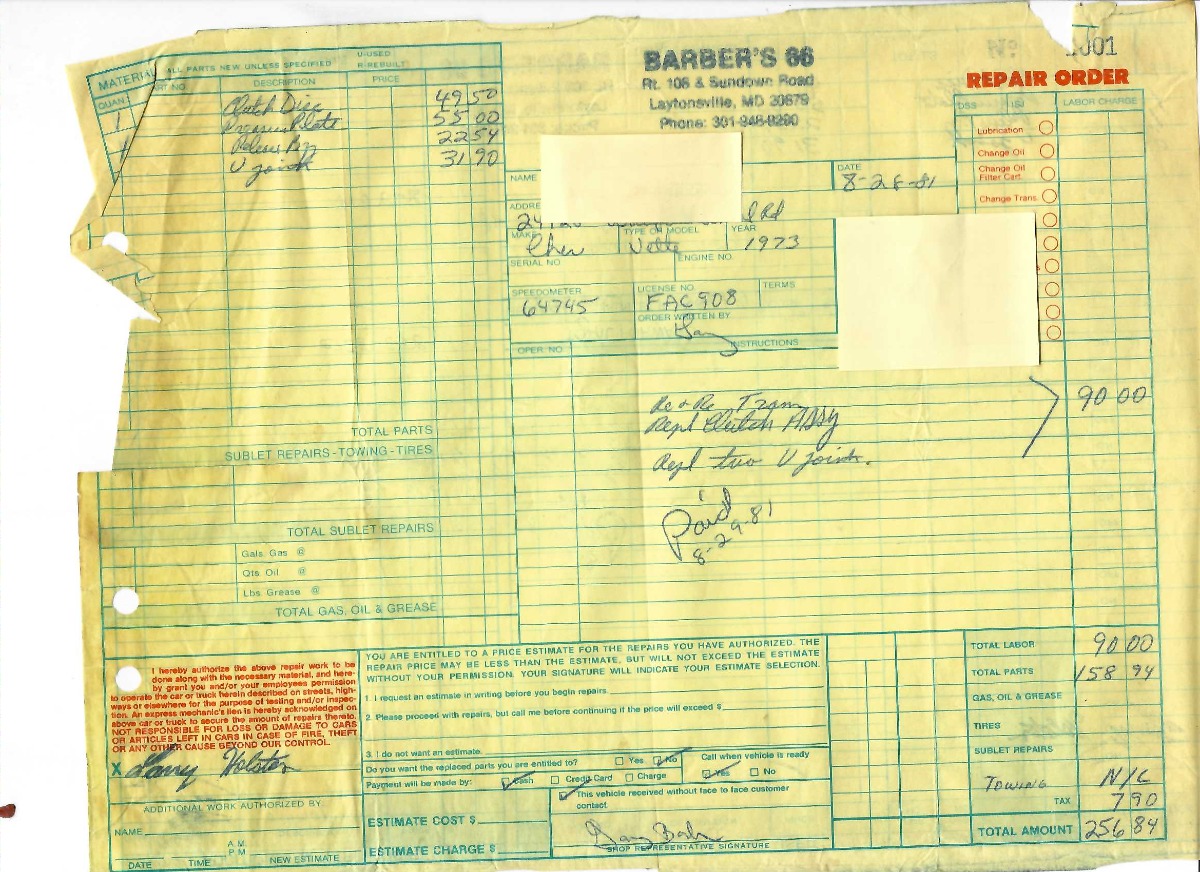 BARBER'S 66
Rt. 108 & Sundown Road
Laytonsville, MD 20879
Phone: 301-948-8290
1001
REPAIR ORDER
MATERIAL ALL PARTS NEW UNLESS SPECIFIED
U-USED
R-REBUILT
QUAN. RT NO. DESCRIPTION PRICE
1 Clutch Disc 49 50
Pressure Plate 55 00
1 Release Brg 22 54
U joint 31 90
TOTAL PARTS
SUBLET REPAIRS-TOWING-TIRES
TOTAL SUBLET REPAIRS
Gals. Gas @
Qts. Oil @
Lbs. Grease @
TOTAL GAS, OIL & GREASE
NAME
DATE
8-28-81
ADDRE
Rd
MAKE TYPE OR MODEL YEAR
Chev 1973
SERIAL NO. ENGINE NO.
SPEEDOMETER LICENSE NO. TERMS
64745 FAC908
ORDER WRITTEN BY
Gary
OPER. NO. INSTRUCTIONS
LABOR CHARGE
Lubrication
Change Oil
Change Oil
Filter Cart.
Change Trans.
Re & Re Trans
Repl Clutch ASSY
90 00
Repl two U joints.
Paid
8-29-81
I hereby authorize the above repair work to be
done along with the necessary material, and here-
by grant you and/or your employees permission
to operate the car or truck herein described on streets, high-
ways or elsewhere for the purpose of testing and/or inspec-
tion. An express mechanic's lien is hereby acknowledged on
above car or truck to secure the amount of repairs thereto.
NOT RESPONSIBLE FOR LOSS OR DAMAGE TO CARS
OR ARTICLES LEFT IN CARS IN CASE OF FIRE, THEFT
OR ANY OTHER CAUSE BEYOND OUR CONTROL.
X Larry Holster
ADDITIONAL WORK AUTHORIZED BY:
NAME
A.M.
P.M.
DATE TIME NEW ESTIMATE
YOU ARE ENTITLED TO A PRICE ESTIMATE FOR THE REPAIRS YOU HAVE AUTHORIZED. THE
REPAIR PRICE MAY BE LESS THAN THE ESTIMATE, BUT WILL NOT EXCEED THE ESTIMATE
WITHOUT YOUR PERMISSION. YOUR SIGNATURE WILL INDICATE YOUR ESTIMATE SELECTION.
1. I request an estimate in writing before you begin repairs.
2. Please proceed with repairs, but call me before continuing if the price will exceed $
3. I do not want an estimate.
Do you want the replaced parts you are entitled to? Yes No
Call when vehicle is ready
Yes No
Payment will be made by: Cash Credit Card Charge
This vehicle received without face to face customer
contact.
ESTIMATE COST $
ESTIMATE CHARGE $
Gary Barber
SHOP REPRESENTATIVE SIGNATURE
TOTAL LABOR 90 00
TOTAL PARTS 158 94
GAS, OIL & GREASE
TIRES
SUBLET REPAIRS
TOWING N/C
TAX 7 90
TOTAL AMOUNT 256 84